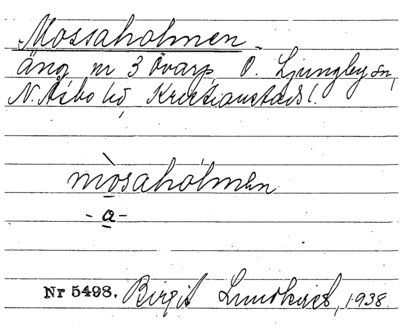 Mossaholmen
äng nr 3 Övarp, Ö. Ljungby sn,
N. Åsbo hd, Kristianstads l.
mòsahólmen
- a -
Nr 5498. Birgit Lundkvist, 1938.